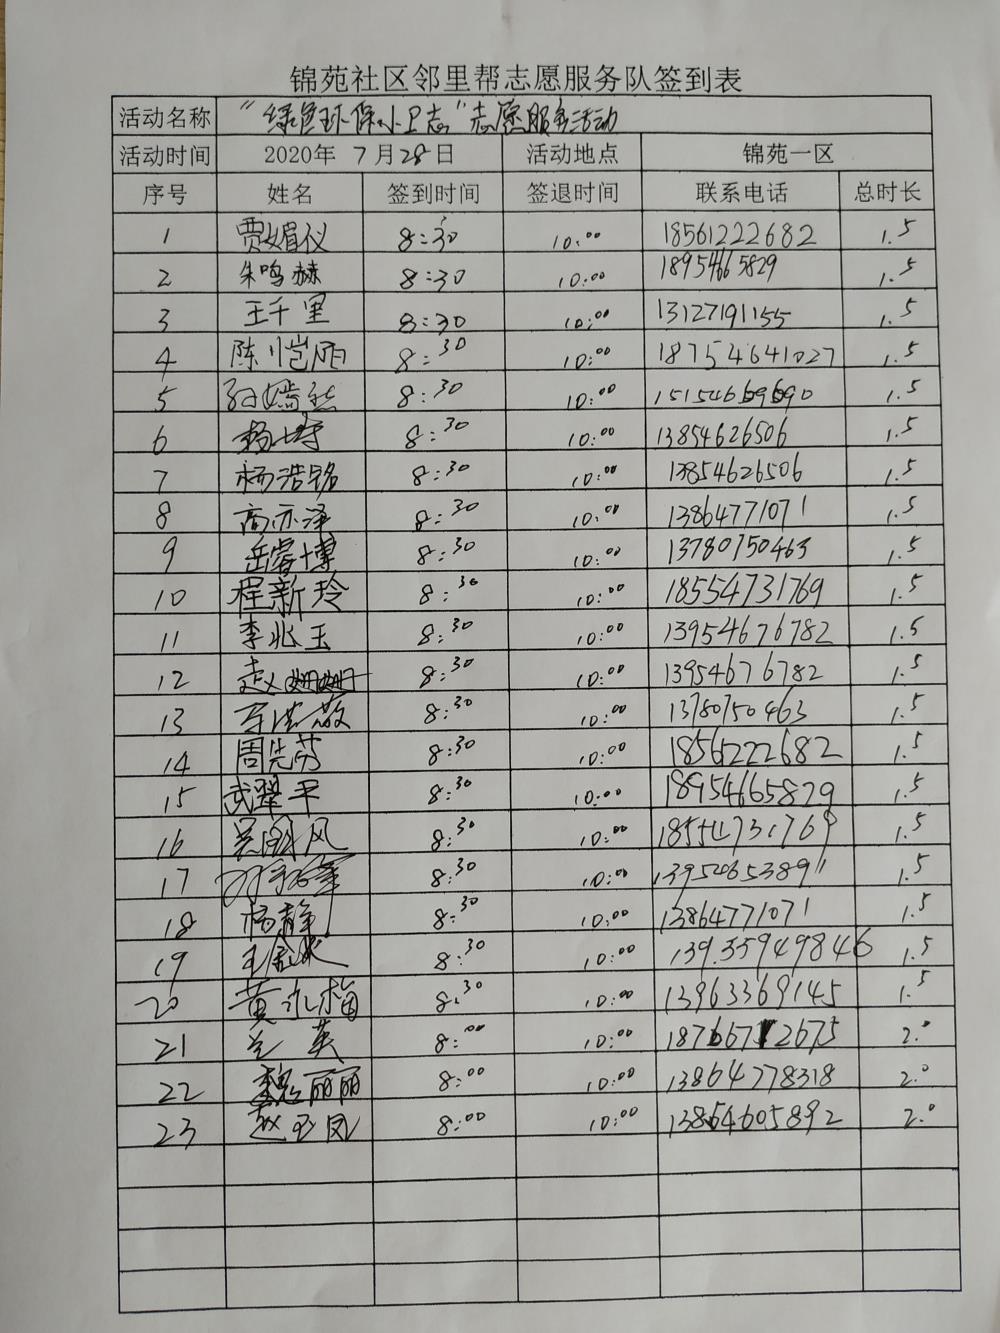 锦苑社区邻里帮志愿服务队签到表
活动名称 "绿色环保小卫志"志愿服务活动
活动时间 2020年 7月28日 活动地点 锦苑一区
序号 姓名 签到时间 签退时间 联系电话 总时长
1 贾媚仪 8:30 10:00 18561222682 1.5
2 朱鸣赫 8:30 10:00 18954665829 1.5
3 王千里 8:30 10:00 13127191155 1.5
4 陈恺阳 8:30 10:00 18754641027 1.5
5 孙嫣然 8:30 10:00 15154669690 1.5
6 8:30 10:00 13854626506 1.5
7 杨浩铭 8:30 10:00 13854626506 1.5
8 商亦泽 8:30 10:00 13864771071 1.5
9 岳睿博 8:30 10:00 13780750463 1.5
10 程新玲 8:30 10:00 18554731769 1.5
11 李兆玉 8:30 10:00 13954676782 1.5
12 赵姗姗 8:30 10:00 13954676782 1.5
13 8:30 10:00 13780750463 1.5
14 周先芳 8:30 10:00 18561222682 1.5
15 武翠平 8:30 10:00 18954665829 1.5
16 8:30 10:00 18554731769 1.5
17 8:30 10:00 1.5
18 杨静 8:30 10:00 13864771071 1.5
19 8:30 10:00 139.35949846 1.5
20 黄永梅 8:30 10:00 13963369145 1.5
21 英 8:00 10:00 2.0
22 魏丽丽 8:00 10:00 13864778318 2.0
23 赵玉凤 8:00 10:00 13864605892 2.0